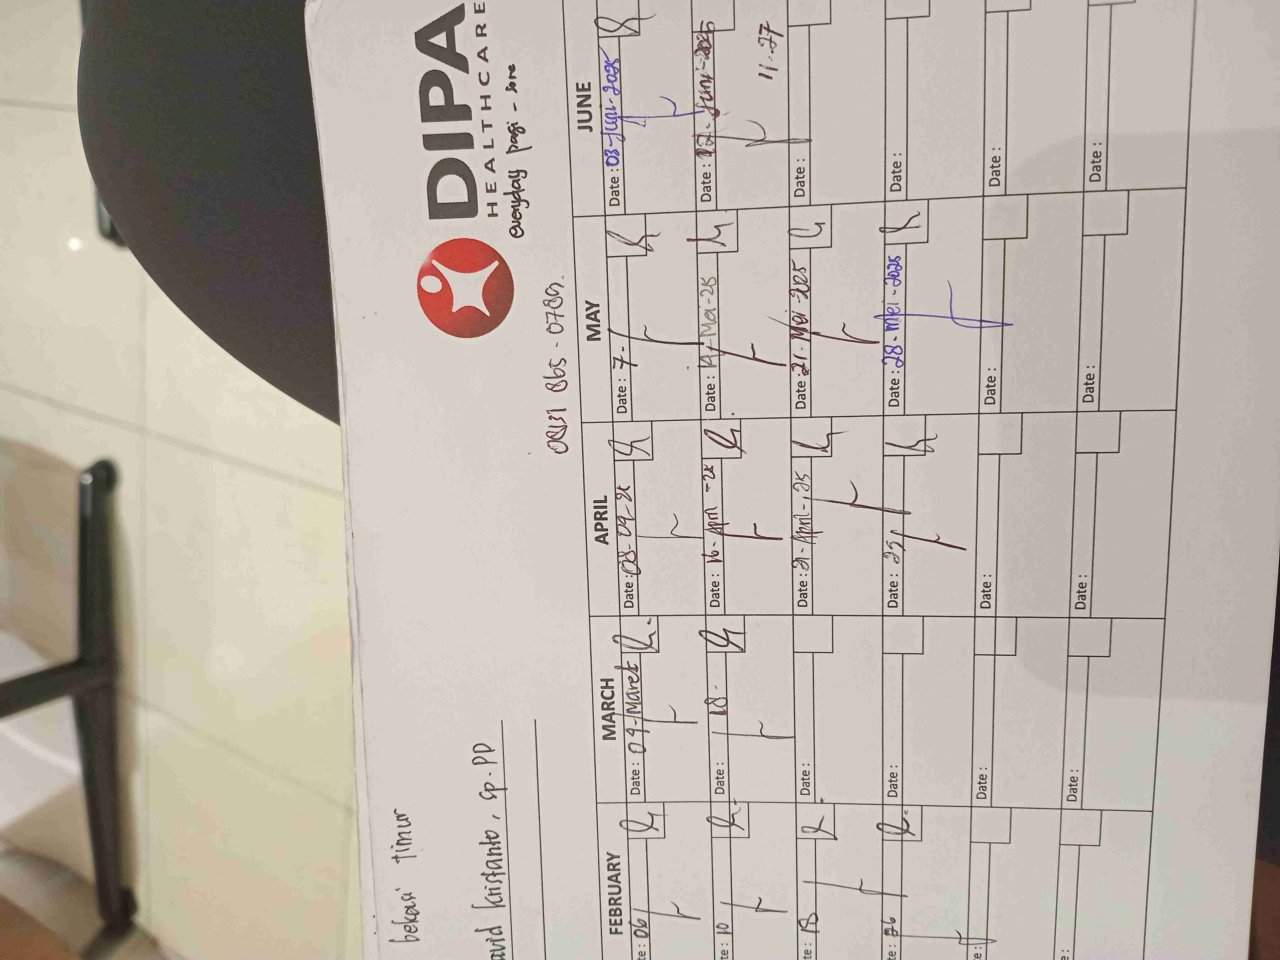 DIPA
HEALTHCARE
everyday pagi - sore
0813 1865 - 0789.
bekasi timur
avid kristanto, sp.PD
FEBRUARY MARCH APRIL MAY JUNE
te: 06 Date: 04-Maret Date: 08-04-25 Date: 7- Date: 03-Juni-2025
te: 10 Date: 18- Date: 16-April-25 Date: 14-Mei-25 Date: Juni-2025
11.27
te: 18 Date: Date: 21-April-25 Date: 21-Mei-2025 Date:
te: 26 Date: Date: Date: 28-Mei-2025 Date:
te: Date: Date: Date: Date:
te: Date: Date: Date: Date: